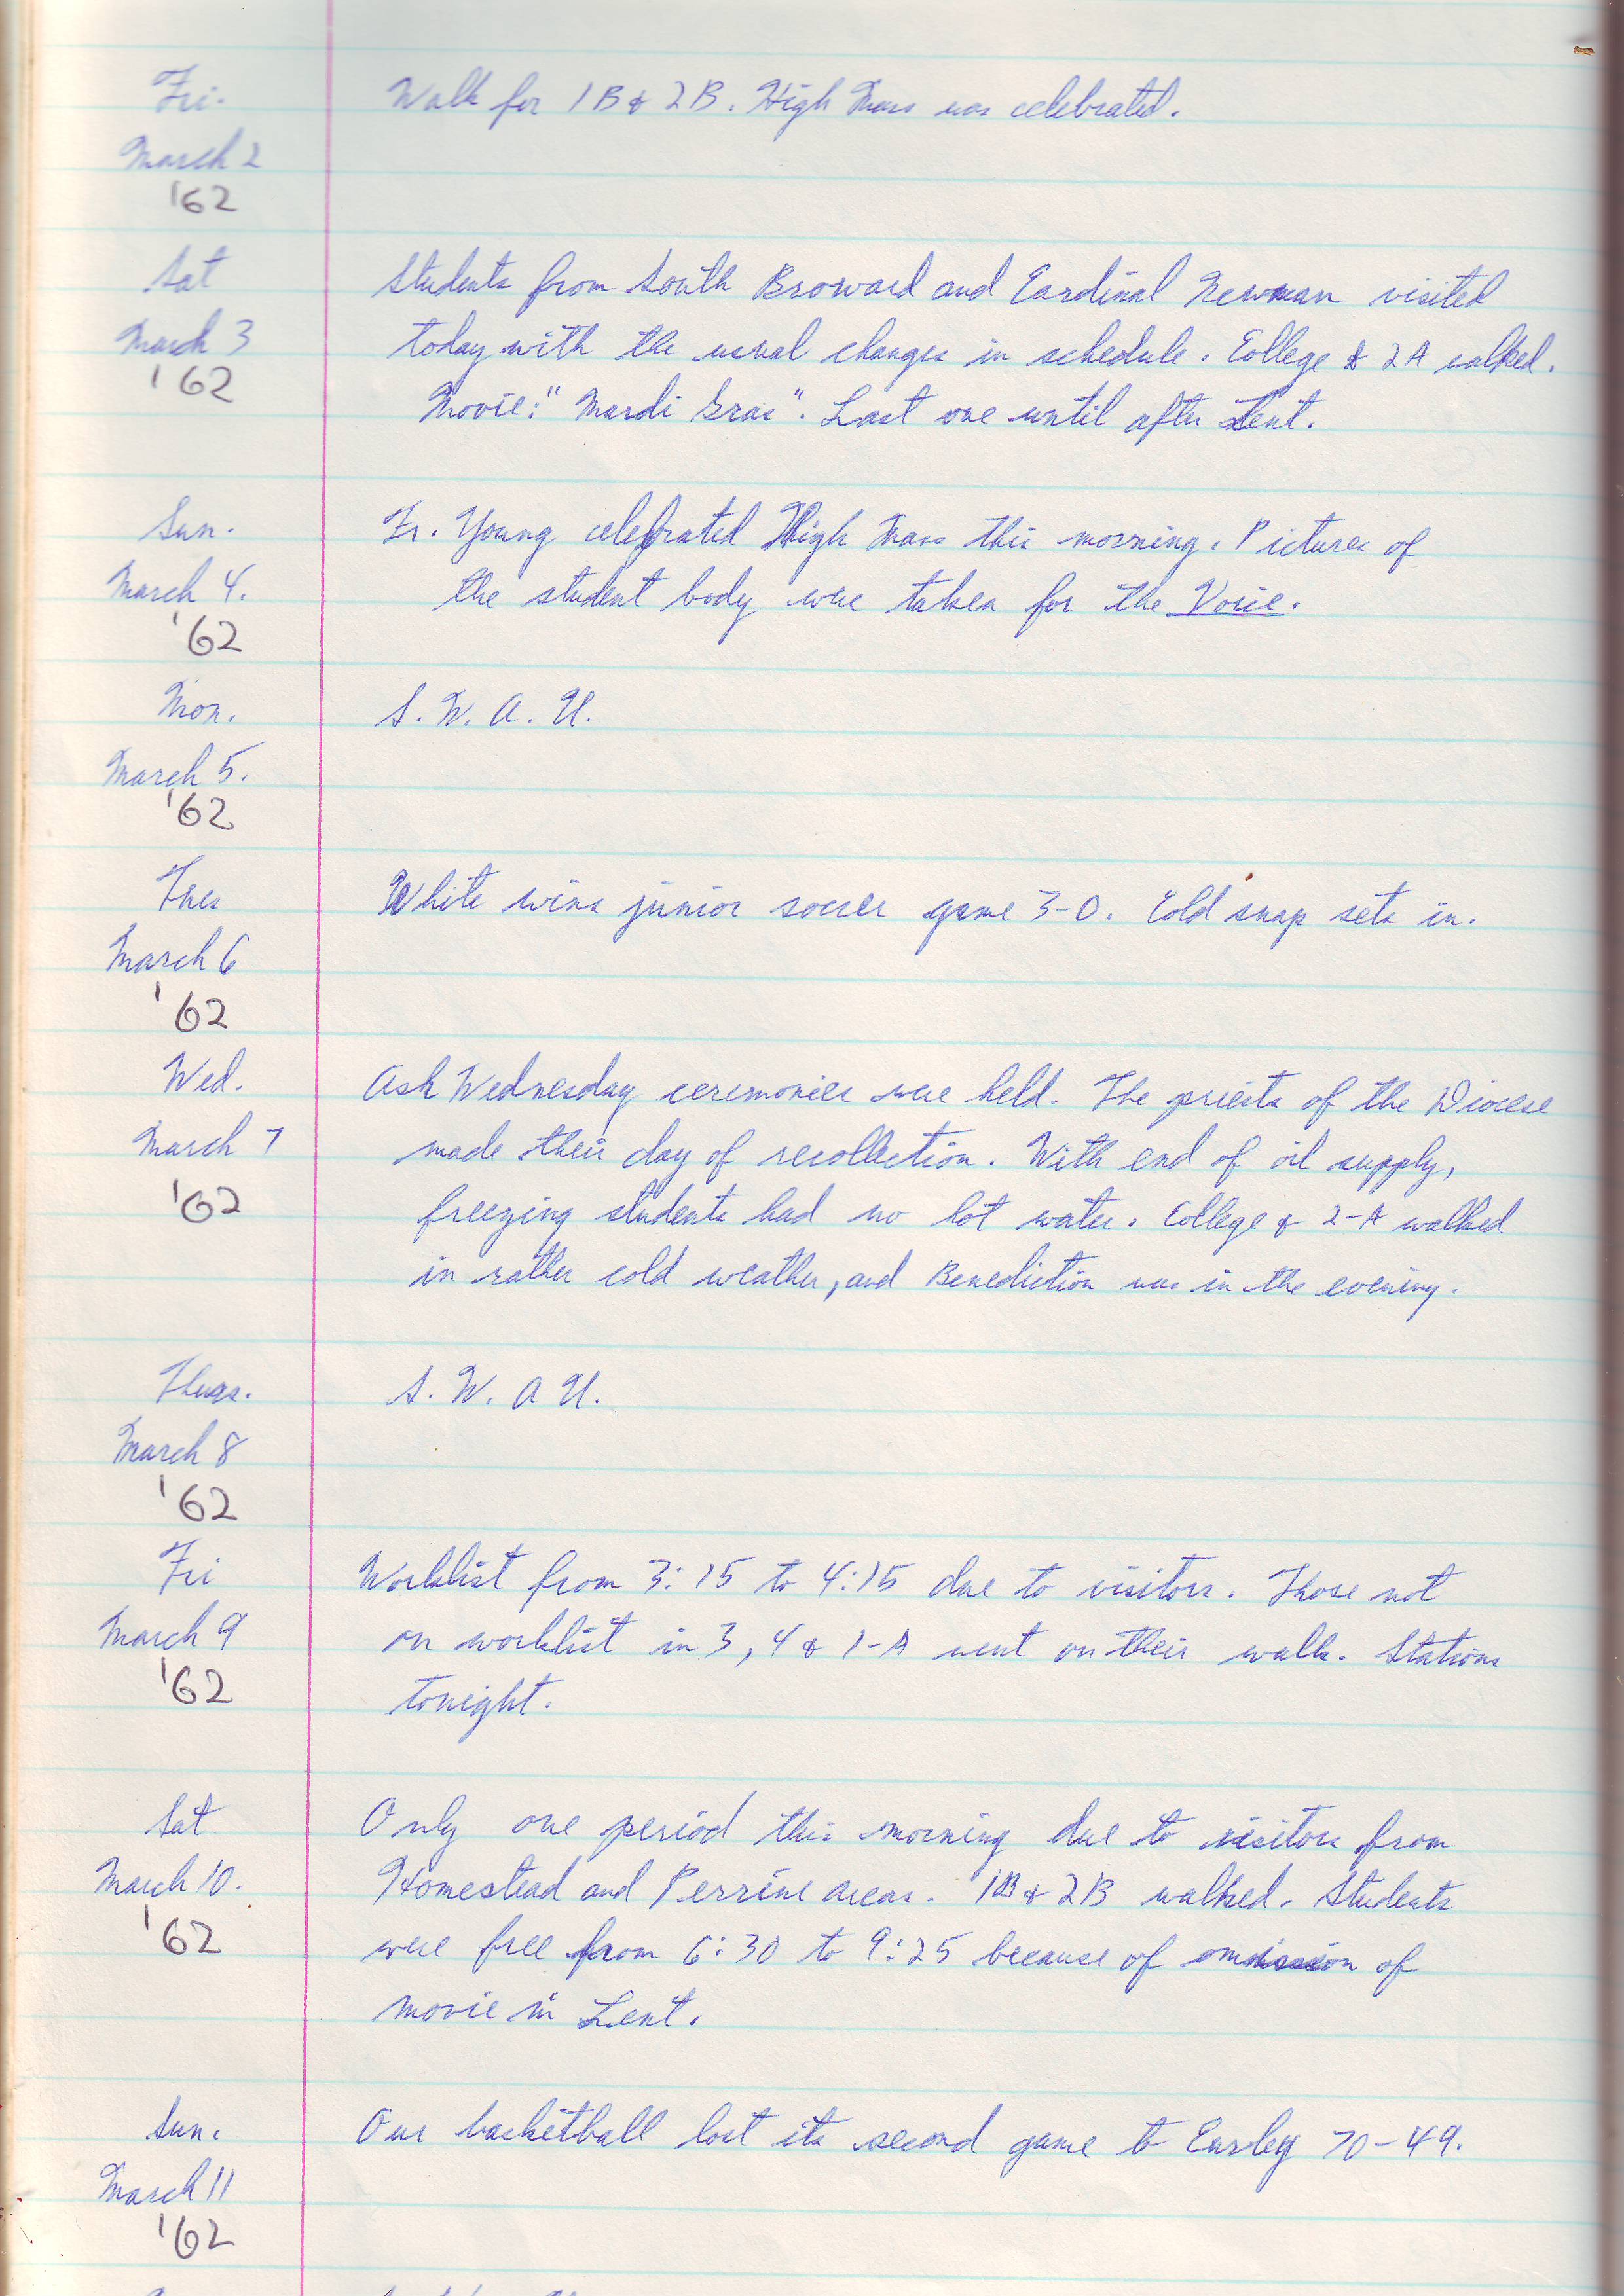 Fri.
Walk for 1B & 2B. High Mass was celebrated.
March 2
'62
Sat
Students from South Broward and Cardinal Newman visited
March 3
today with the usual changes in schedule. College & 2A walked.
'62
Movie: "Mardi Gras". Last one until after Lent.
Sun.
Fr. Young celebrated High Mass this morning. Pictures of
March 4.
the student body were taken for the Voice.
'62
Mon.
S. W. A. U.
March 5.
'62
Tues
White wins junior soccer game 3-0. Cold snap sets in.
March 6
'62
Wed.
Ash Wednesday ceremonies were held. The priests of the Diocese
March 7
made their day of recollection. With end of oil supply,
'62
freezing students had no hot water. College & 2-A walked
in rather cold weather, and Benediction was in the evening.
Thurs.
S. W. A U.
March 8
'62
Fri
Worklist from 3:15 to 4:15 due to visitors. Those not
March 9
on worklist in 3, 4 & 1-A went on their walk. Stations
'62
tonight.
Sat.
Only one period this morning due to visitors from
March 10.
Homestead and Perrine areas. 1B & 2B walked. Students
'62
were free from 6:30 to 9:25 because of omission of
movie in Lent.
Sun.
Our basketball lost its second game to Curley 70-49.
March 11
'62